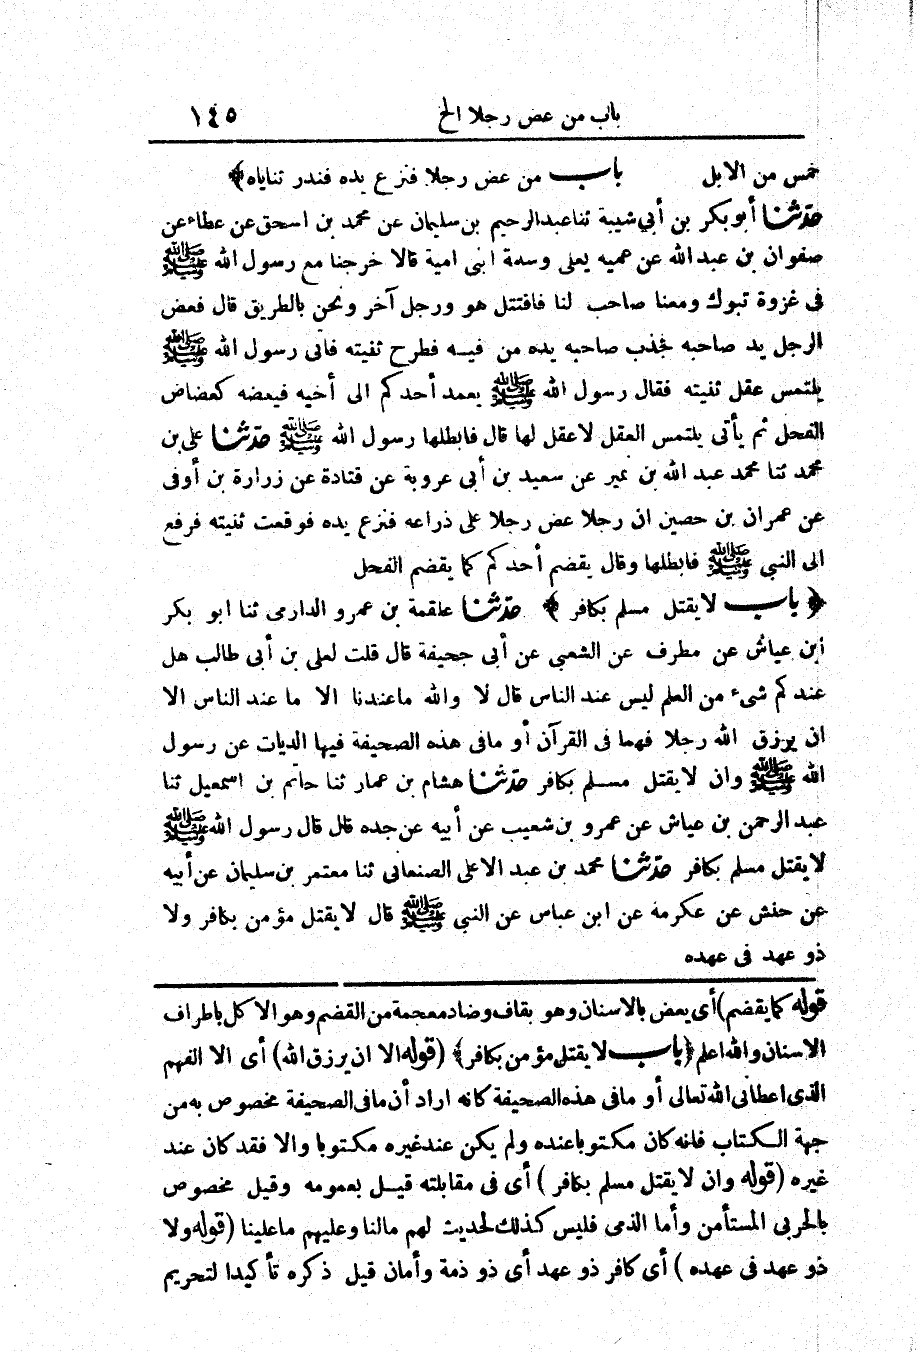 باب من عض رجلا الخ ١٤٥
خمس من الابل باب من عض رجلا فنزع يده فندر ثناياه﴾
حدثنا أبو بكر بن أبي شيبة ثنا عبد الرحيم بن سليمان عن محمد بن اسحق عن عطاء عن
صفوان بن عبد الله عن عميه يعلى وسلمة ابنى امية قالا خرجنا مع رسول الله ﷺ
فى غزوة تبوك ومعنا صاحب لنا فاقتتل هو ورجل آخر ونحن بالطريق قال فعض
الرجل يد صاحبه فجذب صاحبه يده من فيه فطرح ثنيته فاتى رسول الله ﷺ
يلتمس عقل ثنيته فقال رسول الله ﷺ يعمد أحدكم الى أخيه فيعضه كعضاض
الفحل ثم يأتى يلتمس العقل لا عقل لها قال فابطلها رسول الله ﷺ حدثنا على بن
محمد ثنا محمد عبد الله بن نمير عن سعيد بن أبي عروبة عن قتادة عن زرارة بن أوفى
عن عمران بن حصين ان رجلا عض رجلا على ذراعه فنزع يده فوقعت ثنيته فرفع
الى النبى ﷺ فابطلها وقال يقضم أحدكم كما يقضم الفحل
﴿ باب لا يقتل مسلم بكافر ﴾ حدثنا علقمة بن عمرو الدارمى ثنا ابو بكر
ابن عياش عن مطرف عن الشعبى عن أبى جحيفة قال قلت لعلى بن أبى طالب هل
عندكم شىء من العلم ليس عند الناس قال لا والله ما عندنا الا ما عند الناس الا
ان يرزق الله رجلا فهما فى القرآن أو مافى هذه الصحيفة فيها الديات عن رسول
الله ﷺ وان لا يقتل مسلم بكافر حدثنا هشام بن عمار ثنا حاتم بن اسمعيل ثنا
عبد الرحمن بن عياش عن عمرو بن شعيب عن أبيه عن جده قال قال رسول الله ﷺ
لا يقتل مسلم بكافر حدثنا محمد بن عبد الاعلى الصنعانى ثنا معتمر بن سليمان عن أبيه
عن حنش عن عكرمة عن ابن عباس عن النبى ﷺ قال لا يقتل مؤمن بكافر ولا
ذو عهد فى عهده
قوله كما يقضم) أى يعض بالاسنان وهو بقاف وضاد معجمة من القضم وهو الاكل باطراف
الاسنان والله اعلم ﴿باب لا يقتل مؤمن بكافر﴾ (قوله الا ان يرزق الله) أى الا الفهم
الذى اعطانى الله تعالى أو مافى هذه الصحيفة كانه اراد أن مافى الصحيفة مخصوص به من
جهة الكتاب فانه كان مكتوبا عنده ولم يكن عند غيره مكتوبا والا فقد كان عند
غيره (قوله وان لا يقتل مسلم بكافر) أى فى مقابلته قيل بعمومه وقيل مخصوص
بالحربى المستأمن وأما الذمى فليس كذلك لحديث لهم مالنا وعليهم ماعلينا (قوله ولا
ذو عهد فى عهده) أى كافر ذو عهد أى ذو ذمة وأمان قيل ذكره تأكيدا لتحريم